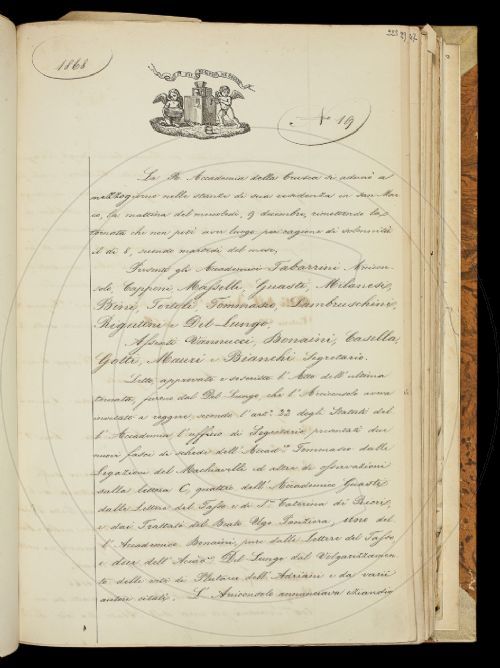 1868
N 19
La R. Accademia della Crusca si adunò a
mezzogiorno nelle stanze di sua residenza in San Mar-
co, la mattina del mercoledì, 9 decembre, rimettendo la
tornata che non potè aver luogo per cagione di solennità
il dì 8, secondo martedì del mese.
Presenti gli Accademici Tabarrini Arcicon-
solo, Capponi, Maffei, Guasti, Milanesi,
Bini, Tortoli, Tommaseo, Lambruschini,
Rigutini e Del-Lungo.
Assenti Vannucci, Bonaini, Casella,
Gotti, Mauri e Bianchi Segretario.
Letto, approvato e soscritto l'Atto dell'ultima
tornata, furono dal Del Lungo, che l'Arciconsolo aveva
invitato a reggere, secondo l'art.º 22 degli Statuti del-
l'Accademia l'ufficio di Segretario, presentati due
nuovi fasci di schede dell'Accad.co Tommaseo dalle
Legazioni del Machiavelli ed altre di osservazioni
sulla lettera C, quattro dell'Accademico Guasti
dalle Lettere del Tasso e di S.ª Caterina de' Ricci,
e dai Trattati del Beato Ugo Panziera, uno del-
l'Accademico Bonaini, pure dalle Lettere del Tasso,
e dieci dell'Accad.co Del-Lungo dal Volgarizzamen-
to delle vite di Plutarco dell'Adriani e da varii
autori citati. L'Arciconsolo annunciava eziandio